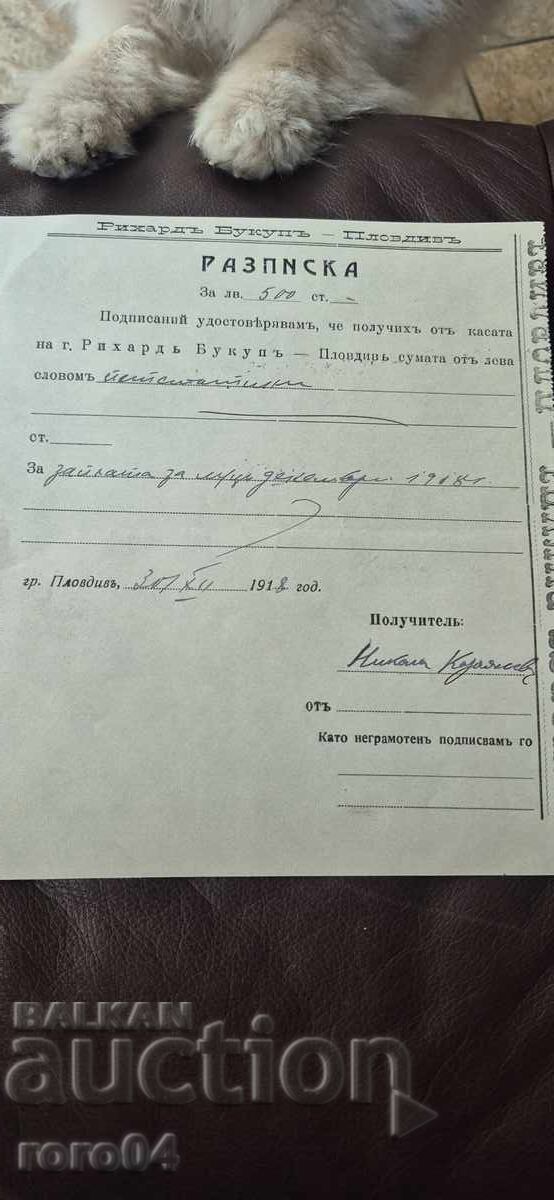 Рихардъ Букупъ – Пловдивъ
РАЗПИСКА
За лв. 500 ст. –
Подписаний удостовѣрявамъ, че получихъ отъ касата
на г. Рихардъ Букупъ – Пловдивъ сумата отъ лева
словомъ петстотинъ
ст.
За заплата за м-цъ декемврий 1918 г.
гр. Пловдивъ, 30/XII 1918 год.
Получитель:
Никола
отъ
Като неграмотенъ подписвамъ го
BALKAN
auction
roro04